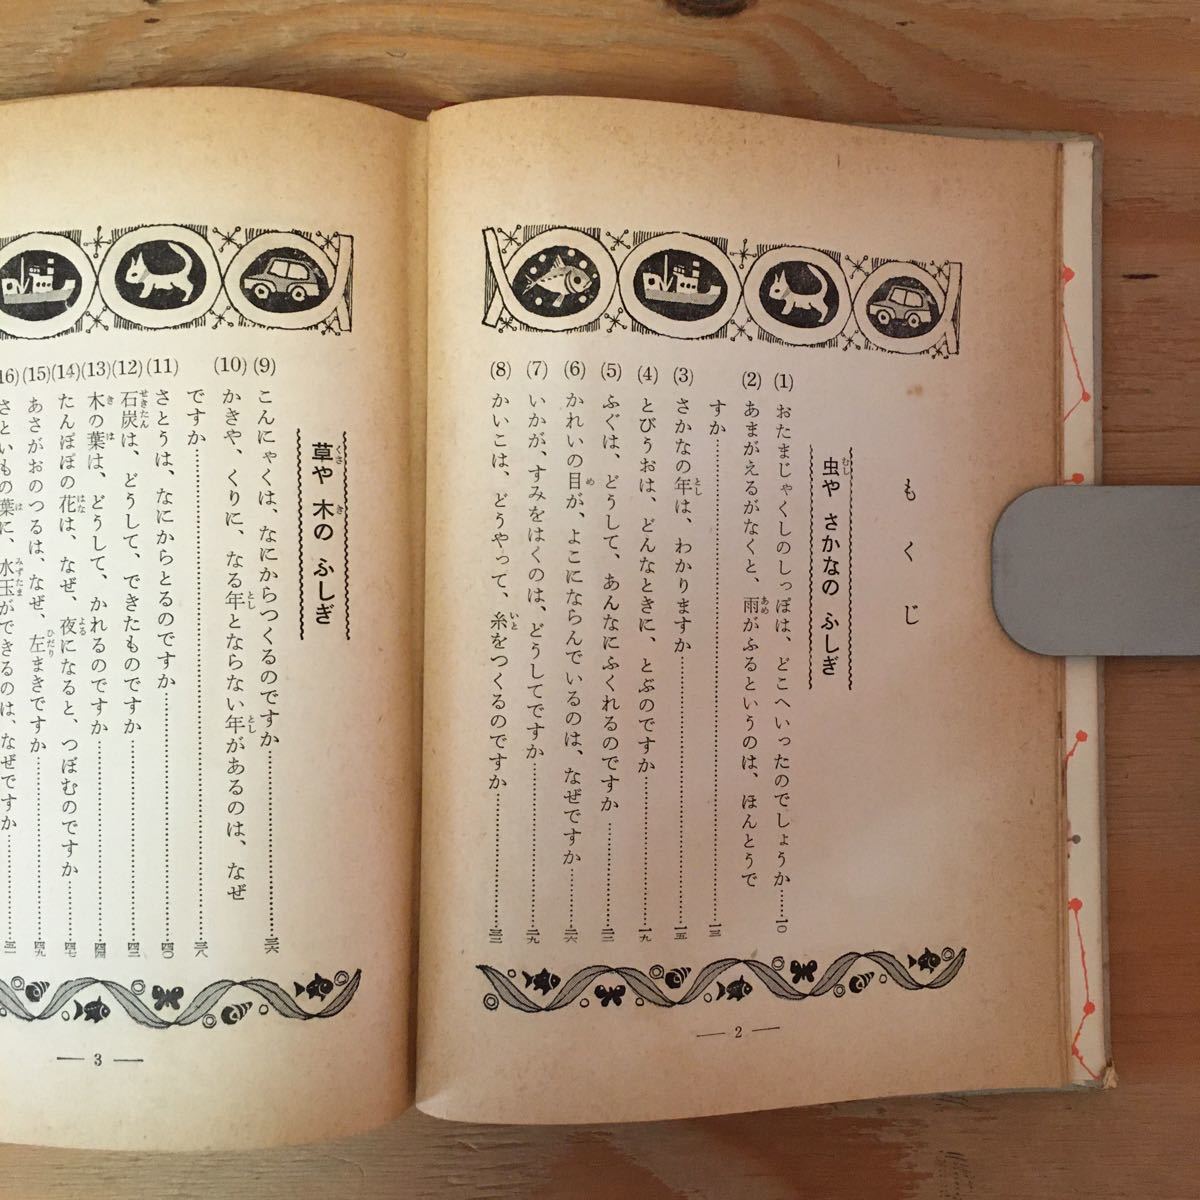 もくじ
虫や さかなの ふしぎ
(1) おたまじゃくしのしっぽは、どこへいったのでしょうか……一〇
(2) あまがえるがなくと、雨がふるというのは、ほんとうで
すか……一三
(3) さかなの年は、わかりますか……一五
(4) とびうおは、どんなときに、とぶのですか……一九
(5) ふぐは、どうして、あんなにふくれるのですか……二三
(6) かれいの目が、よこにならんでいるのは、なぜですか……二六
(7) いかが、すみをはくのは、どうしてですか……二九
(8) かいこは、どうやって、糸をつくるのですか……三三
— 2 —
草や 木の ふしぎ
(9) こんにゃくは、なにからつくるのですか……三六
(10) かきや、くりに、なる年とならない年があるのは、なぜ
ですか……三八
(11) さとうは、なにからとるのですか……四〇
(12) 石炭は、どうして、できたものですか……四二
(13) 木の葉は、どうして、かれるのですか……四四
(14) たんぽぽの花は、なぜ、夜になると、つぼむのですか……四七
(15) あさがおのつるは、なぜ、左まきですか……四九
16) さといもの葉に、水玉ができるのは、なぜですか……
— 3 —